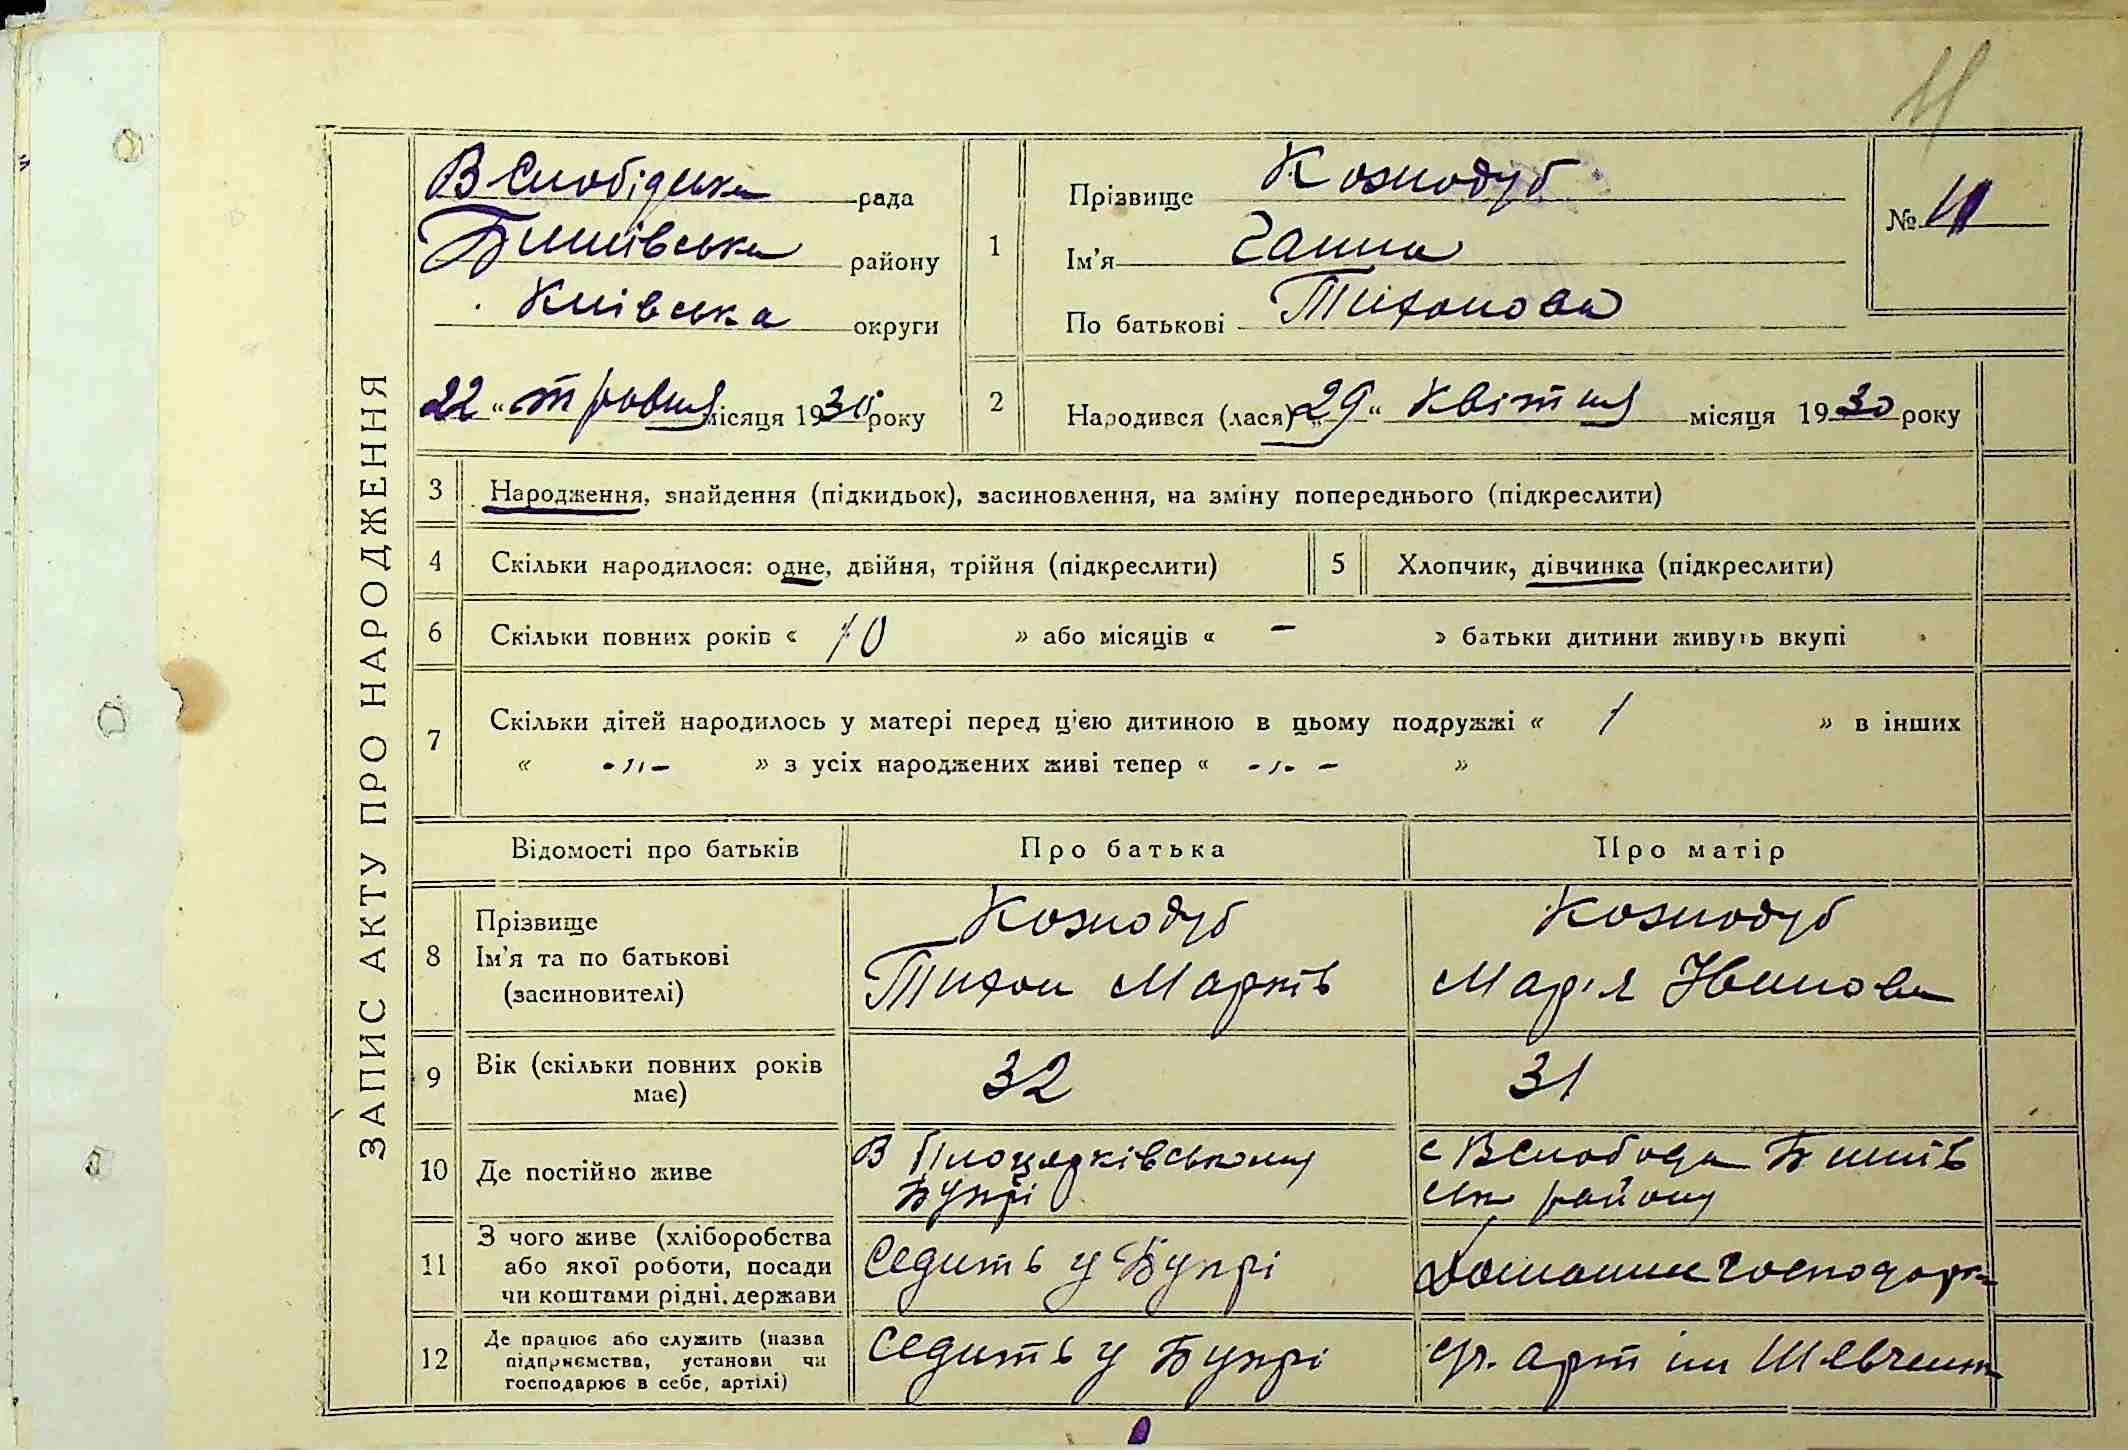 11
ЗАПИС АКТУ ПРО НАРОДЖЕННЯ
В Слобідська рада
Бишівська району
Київська округи
22 " травня місяця 1930 року
1
Прізвище Кознодуб
Ім'я Ганна
По батькові Тихонова
№ 11
2
Народився (лася) „29" квітня місяця 1930 року
3 Народження, знайдення (підкидьок), засиновлення, на зміну попереднього (підкреслити)
4 Скільки народилося: одне, двійня, трійня (підкреслити) 5 Хлопчик, дівчинка (підкреслити)
6 Скільки повних років « 10 » або місяців « – » батьки дитини живуть вкупі
7 Скільки дітей народилось у матері перед ц'єю дитиною в цьому подружжі « 1 » в інших
« -„- » з усіх народжених живі тепер « -„- »
Відомості про батьків Про батька Про матір
8 Прізвище
Ім'я та по батькові
(засиновителі)
Кознодуб
Тихон Март в
Кознодуб
Марія Іванова
9 Вік (скільки повних років
має)
32 31
10 Де постійно живе
В Білоцерківському
Бупрі
с В Слобода Бишів
ськ району
11 З чого живе (хліборобства
або якої роботи, посади
чи коштами рідні, держави
Седить у Бупрі
Домашнє господарк
12 Де працює або служить (назва
підприємства, установи чи
господарює в себе, артілі)
Седить у Бупрі
арт ім Шевченк